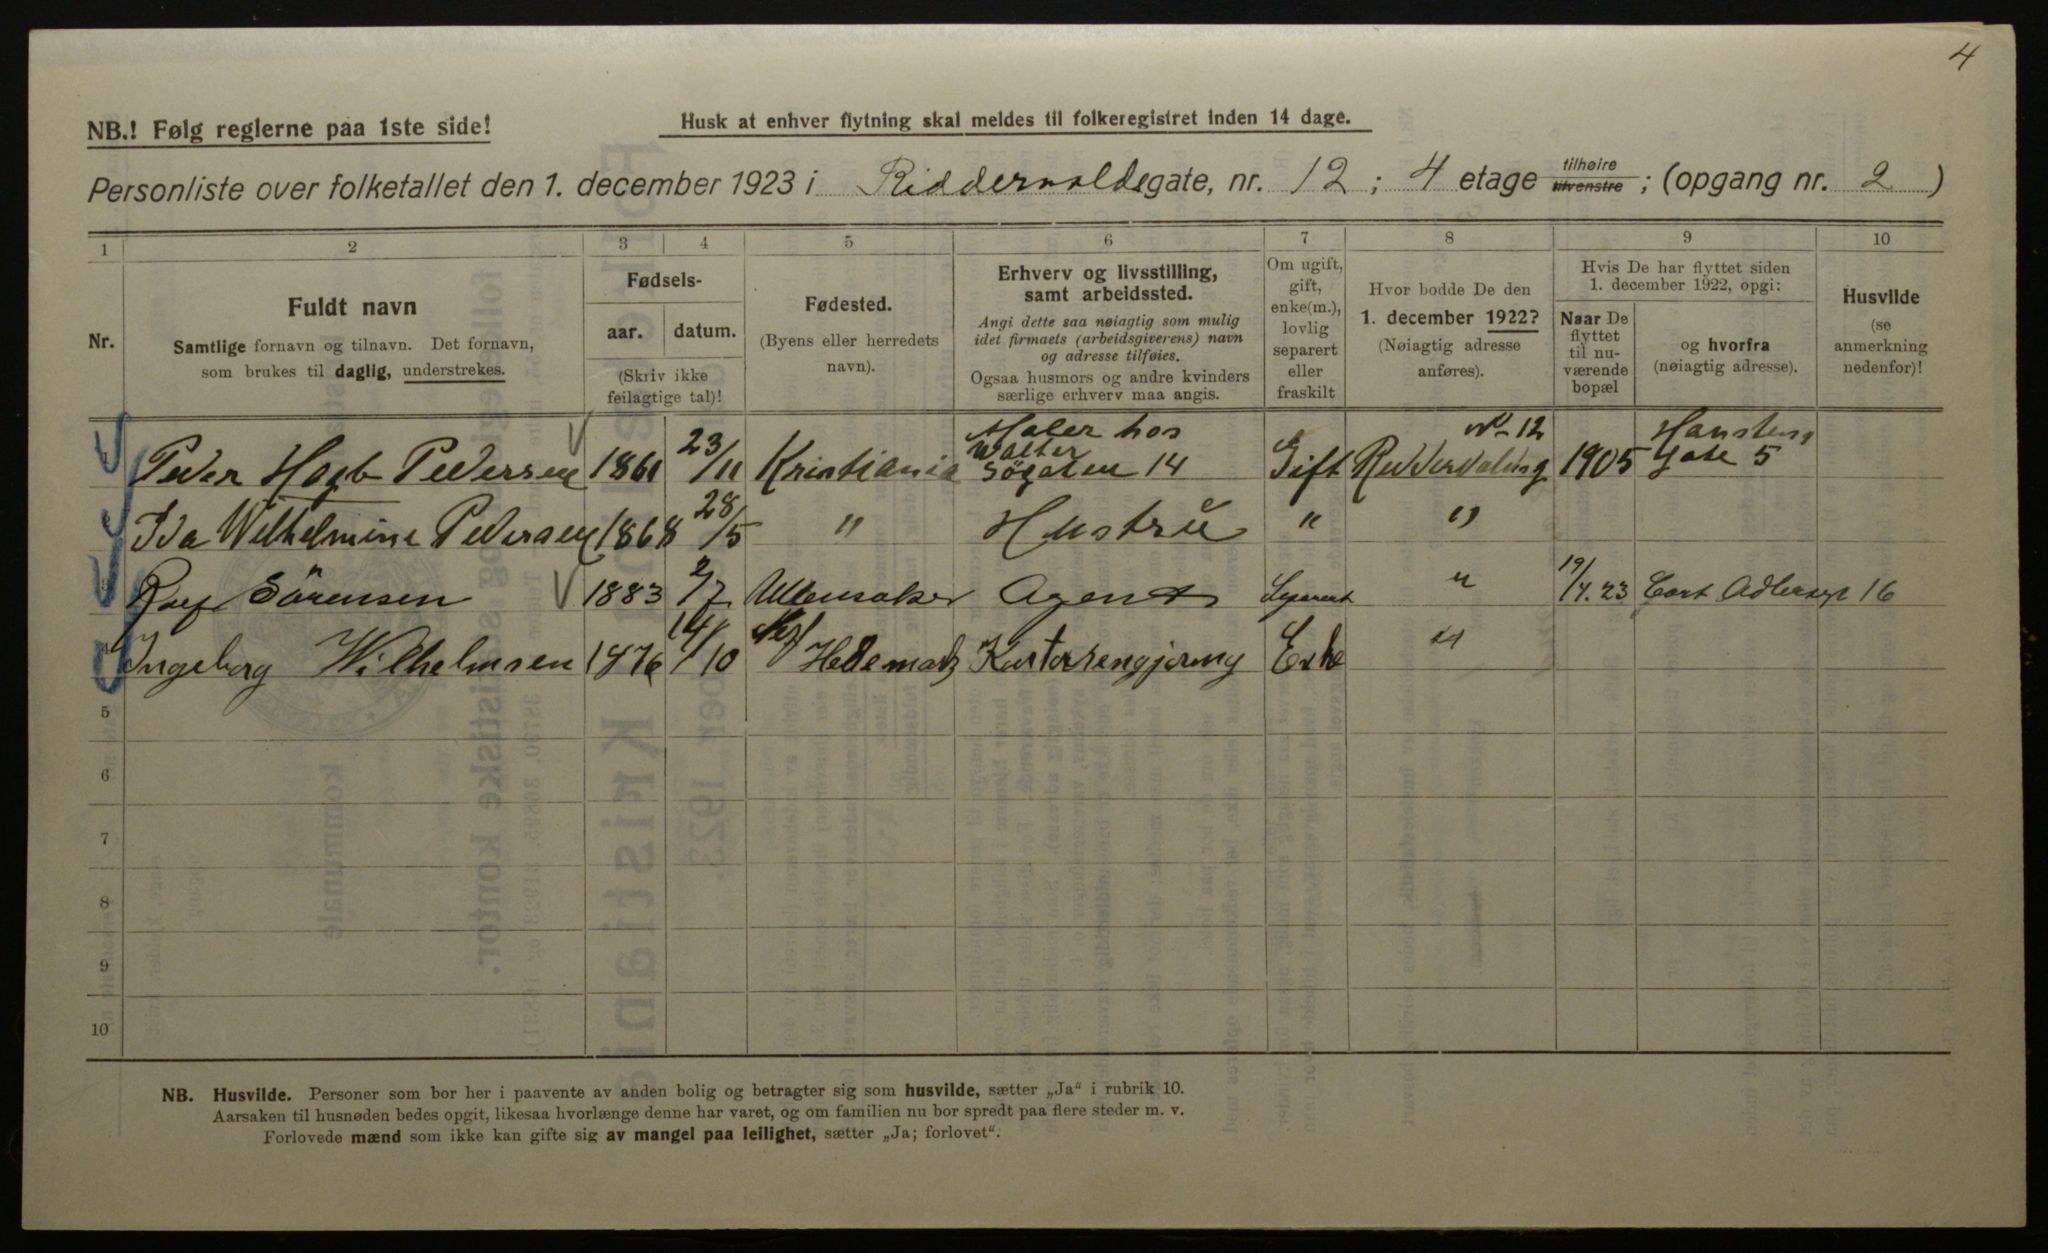 4
NB.! Følg reglerne paa 1ste side!
Husk at enhver flytning skal meldes til folkeregistret inden 14 dage.
Personliste over folketallet den 1. december 1923 i Riddervoldsgate, nr. 12; 4 etage tilhøire tilvenstre; (opgang nr. 2)
1 2 3 4 5 6 7 8 9 10
Nr.
Fuldt navn
Samtlige fornavn og tilnavn. Det fornavn,
som brukes til daglig, understrekes.
Fødsels-
aar. datum.
(Skriv ikke
feilagtige tal)!
Fødested.
(Byens eller herredets
navn).
Erhverv og livsstilling,
samt arbeidssted.
Angi dette saa nøiagtig som mulig
idet firmaets (arbeidsgiverens) navn
og adresse tilføies.
Ogsaa husmors og andre kvinders
særlige erhverv maa angis.
Om ugift,
gift,
enke(m.),
lovlig
separert
eller
fraskilt
Hvor bodde De den
1. december 1922?
(Nøiagtig adresse
anføres).
Hvis De har flyttet siden
1. december 1922, opgi:
Naar De
flyttet
til nu-
værende
bopæl
og hvorfra
(nøiagtig adresse).
Husvilde
(se
anmerkning
nedenfor)!
Peder Hagb Pedersen 1861 23/11 Kristiania Maler hos Walter Søgaten 14 Gift No 12 1905 Gate 5
Ida Wilhelmine Pedersen 1868 28/5 " Hustrü " "
Sörensen 1883 2/7 Ullensaker Agent Separert " 19/4.23 Cort Adlersgt 16
Ingeborg Wilhelmsen 1876 14/10 Hedemark Kontorrengjöring Enke "
5
6
7
8
9
10
NB. Husvilde. Personer som bor her i paavente av anden bolig og betragter sig som husvilde, sætter „Ja“ i rubrik 10.
Aarsaken til husnøden bedes opgit, likesaa hvorlænge denne har varet, og om familien nu bor spredt paa flere steder m. v.
Forlovede mænd som ikke kan gifte sig av mangel paa leilighet, sætter „Ja; forlovet“.